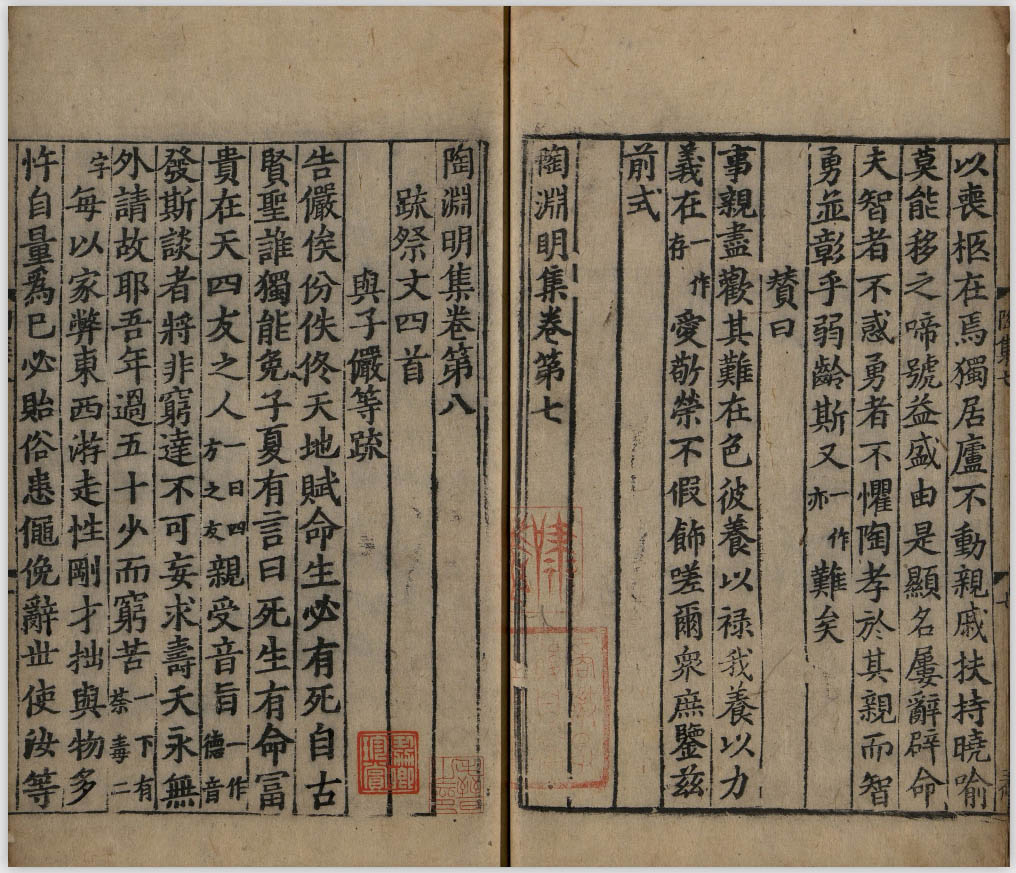 以喪柩在焉獨居廬不動親戚扶持曉喻
莫能移之啼號益盛由是顯名屢辭辟命
夫智者不惑勇者不懼陶孝於其親而智
勇並彰乎弱齡斯又一作亦難矣
贊曰
事親盡歡其難在色彼養以禄我養以力
義在一作存愛敬榮不假飾嗟爾衆庶鑒茲
前式
陶淵明集卷第七
陶淵明集卷第八
䟽祭文四首
與子儼等䟽
告儼俟份佚佟天地賦命生必有死自古
賢聖誰獨能免子夏有言曰死生有命冨
貴在天四友之人一曰四方之友親受音旨一作德音
發斯談者將非窮達不可妄求壽夭永無
外請故耶吾年過五十少而窮苦一下有荼毒二
字每以家弊東西游走性剛才拙與物多
忤自量爲已必貽俗患僶俛辭世使汝等